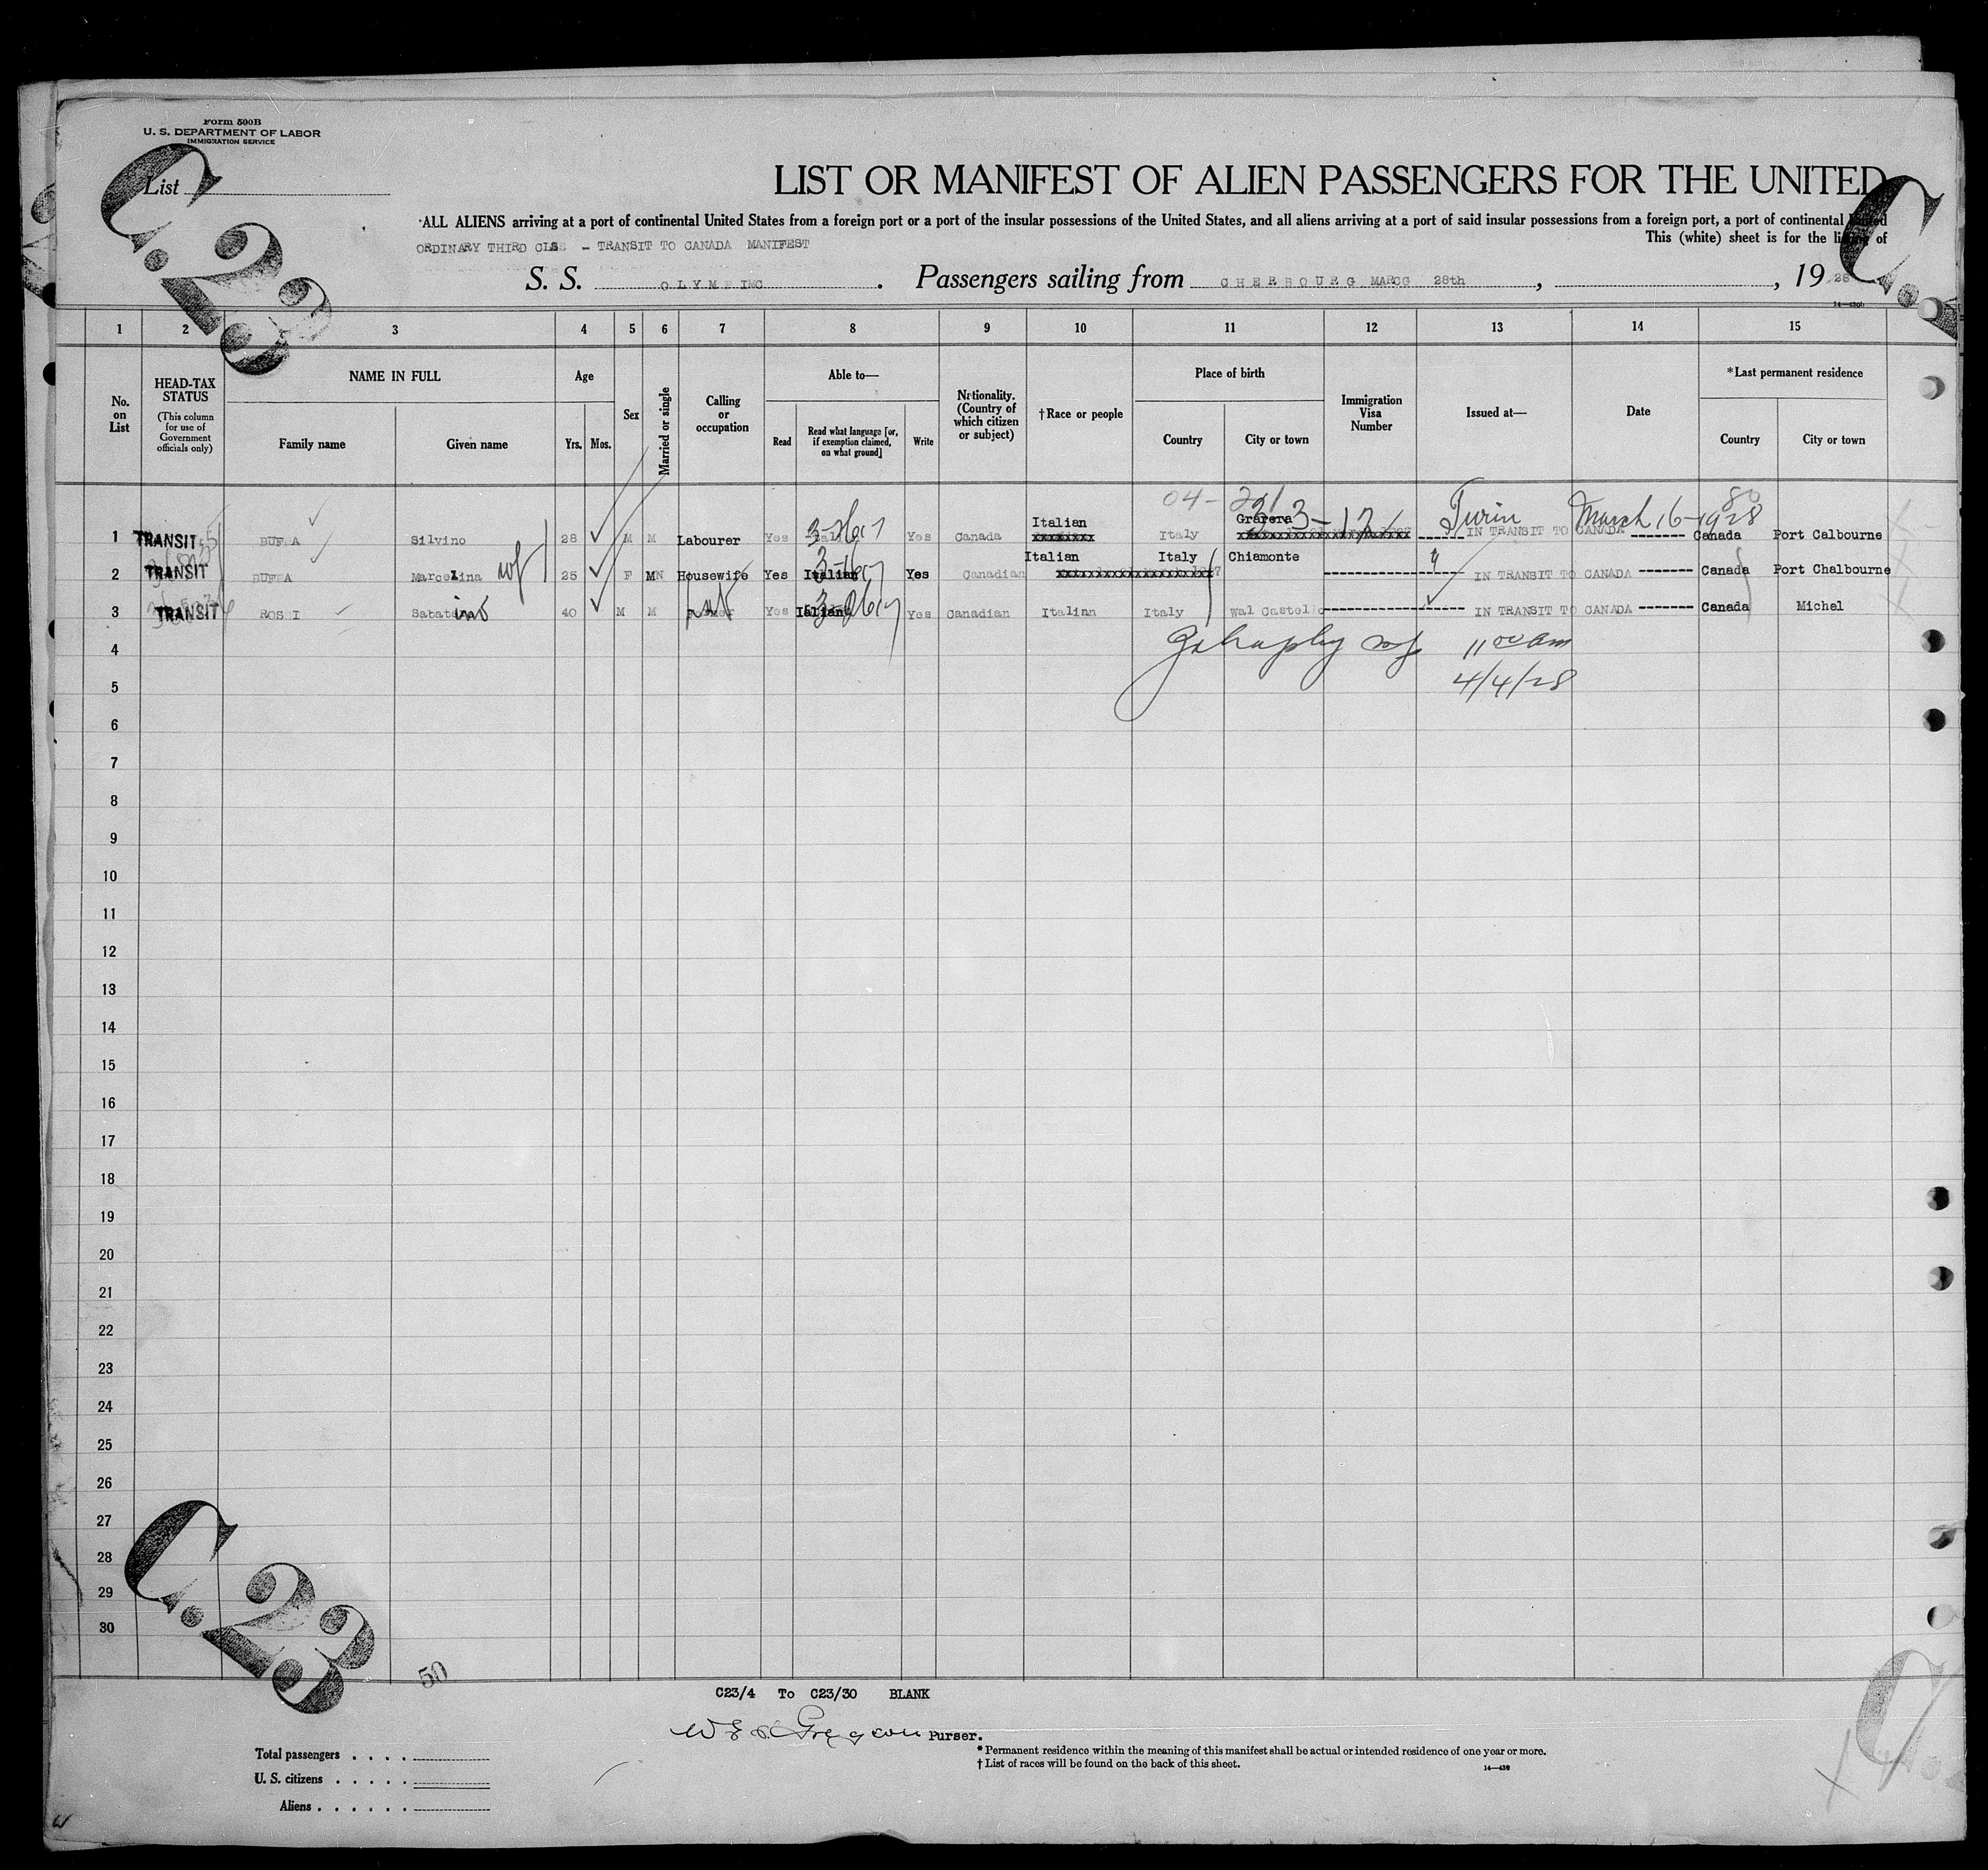 Form 500B
U. S. DEPARTMENT OF LABOR
IMMIGRATION SERVICE
C.23
List
LIST OR MANIFEST OF ALIEN PASSENGERS FOR THE UNITED
C.
ALL ALIENS arriving at a port of continental United States from a foreign port or a port of the insular possessions of the United States, and all aliens arriving at a port of said insular possessions from a foreign port, a port of continental United
This (white) sheet is for the listing of
ORDINARY THIRD CLASS - TRANSIT TO CANADA MANIFEST
S. S. OLYMPIC. Passengers sailing from CHERBOURG MARCG 28th, , 19 28
1 2 3 4 5 6 7 8 9 10 11 12 13 14 15
No. on List
HEAD-TAX STATUS
(This column for use of Government officials only)
NAME IN FULL
Family name Given name
Age
Yrs. Mos.
Sex
Married or single
Calling or occupation
Able to—
Read
Read what language [or, if exemption claimed, on what ground]
Write
Nationality. (Country of which citizen or subject)
†Race or people
Place of birth
Country City or town
Immigration Visa Number
Issued at—
Date
*Last permanent residence
Country City or town
04-
1 TRANSIT BUFFA Silvino 28 M M Labourer Yes Yes Canada Italian Italy Grarera Turin March 16-1928 IN TRANSIT TO CANADA Canada Port Calbourne
2 TRANSIT BUFFA Marcelina wf 25 F M Housewife Yes Italian Yes Canadian Italian Italy Chiamonte IN TRANSIT TO CANADA Canada Port Chalbourne
3 TRANSIT ROSSI Sabatino 40 M M Yes Italian Yes Canadian Italian Italy Wal Castello IN TRANSIT TO CANADA Canada Michel
4 11 00 am
5 4/4/28
6
7
8
9
10
11
12
13
14
15
16
17
18
19
20
21
22
23
24
25
26
27
28
29
30
C.23
50
C23/4 To C23/30 BLANK
Purser.
Total passengers . . . .
U. S. citizens . . . . .
Aliens . . . . . .
* Permanent residence within the meaning of this manifest shall be actual or intended residence of one year or more.
† List of races will be found on the back of this sheet.
14—430